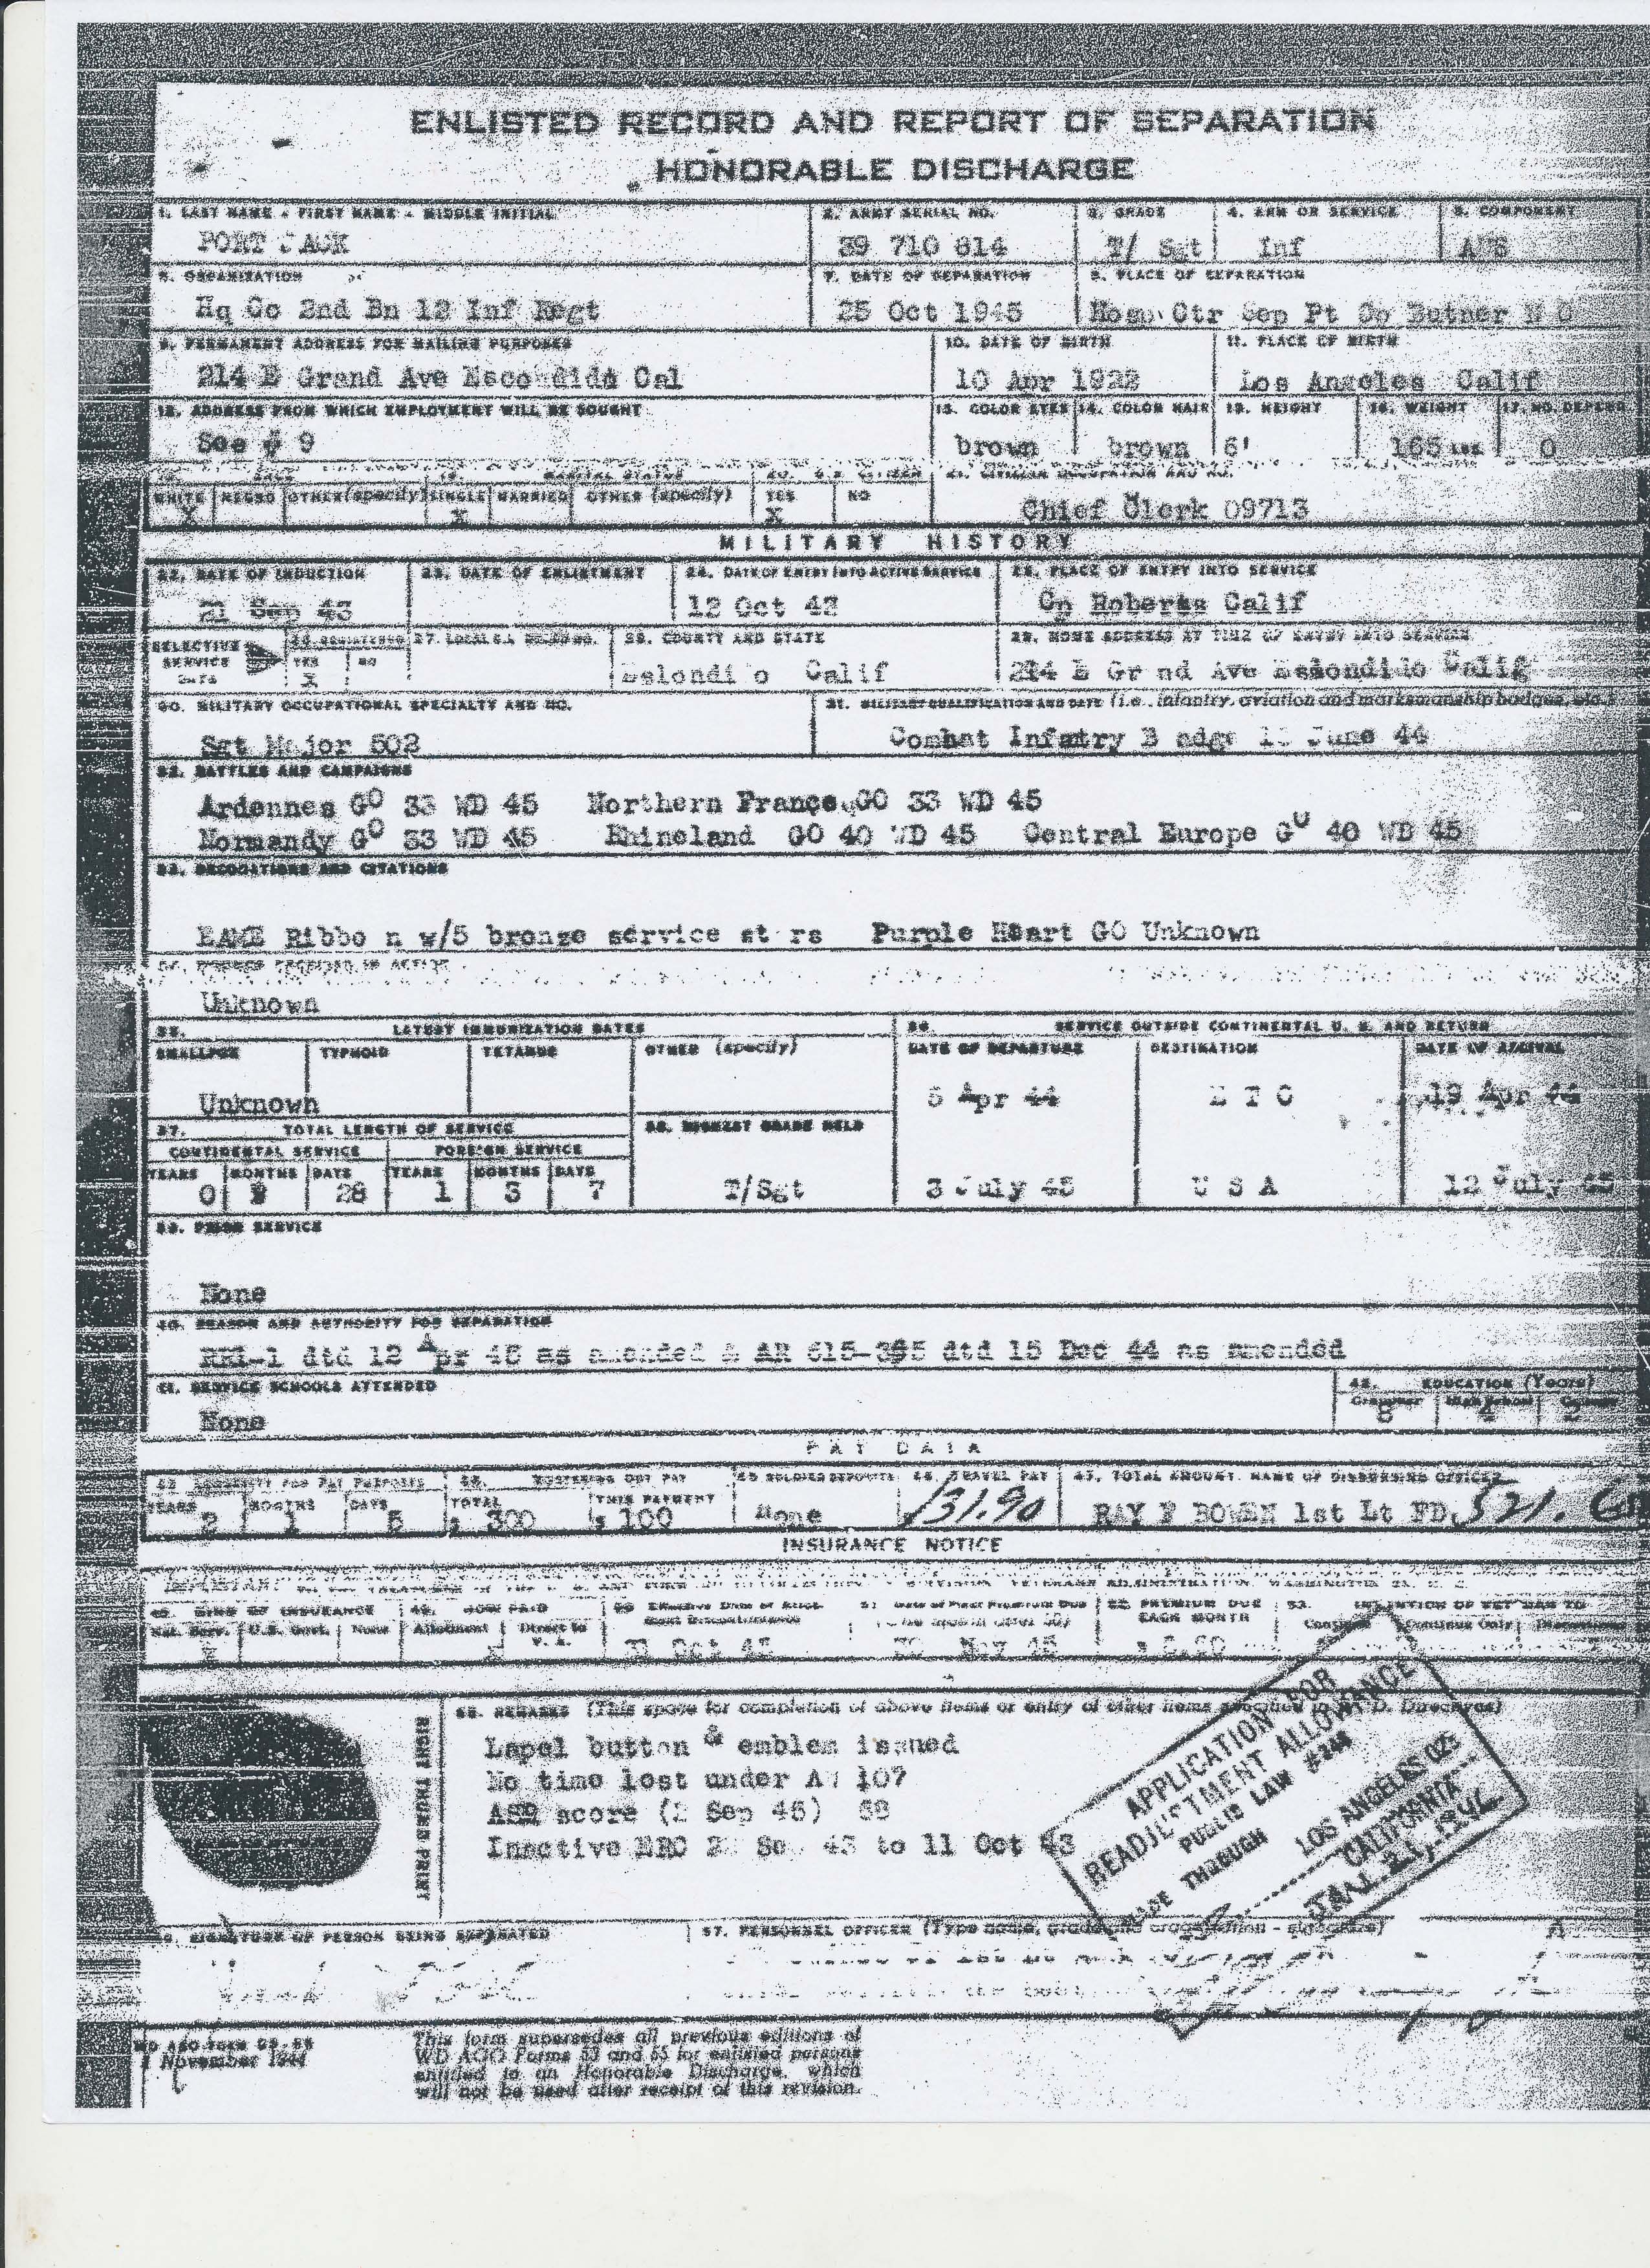 ENLISTED RECORD AND REPORT OF SEPARATION
HONORABLE DISCHARGE
1. LAST NAME - FIRST NAME - MIDDLE INITIAL 2. ARMY SERIAL NO. 3. GRADE 4. ARM OR SERVICE 5. COMPONENT
PORT JACK 39 710 614 T/ Sgt Inf AUS
6. ORGANIZATION 7. DATE OF SEPARATION 8. PLACE OF SEPARATION
Hq Co 2nd Bn 12 Inf Regt 25 Oct 1945 Hosp Ctr Sep Pt Cp Butner N C
9. PERMANENT ADDRESS FOR MAILING PURPOSES 10. DATE OF BIRTH 11. PLACE OF BIRTH
214 E Grand Ave Escondido Cal 10 Apr 1922 Los Angeles Calif
12. ADDRESS FROM WHICH EMPLOYMENT WILL BE SOUGHT 13. COLOR EYES 14. COLOR HAIR 15. HEIGHT 16. WEIGHT 17. NO. DEPEND
See # 9 brown brown 6' 165 LBS. 0
RACE 19. MARITAL STATUS 20. U.S. CITIZEN 21. CIVILIAN OCCUPATION AND NO.
WHITE NEGRO OTHER (specify) SINGLE MARRIED OTHER (specify) YES NO
X X X Chief Clerk 09713
MILITARY HISTORY
22. DATE OF INDUCTION 23. DATE OF ENLISTMENT 24. DATE OF ENTRY INTO ACTIVE SERVICE 25. PLACE OF ENTRY INTO SERVICE
21 Sep 43 12 Oct 43 Cp Roberts Calif
SELECTIVE SERVICE DATA 26. REGISTERED YES NO 27. LOCAL S.S. BOARD NO. 28. COUNTY AND STATE 29. HOME ADDRESS AT TIME OF ENTRY INTO SERVICE
X Eslondi o Calif 214 E Gr nd Ave Eslondido Calif
30. MILITARY OCCUPATIONAL SPECIALTY AND NO. 31. MILITARY QUALIFICATION AND DATE (i.e., infantry, aviation and marksmanship badges, etc.)
Sgt Major 502 Combat Infatry B adge June 44
32. BATTLES AND CAMPAIGNS
Ardennes GO 33 WD 45 Northern France GO 33 WD 45
Normandy GO 33 WD 45 Rhineland GO 40 WD 45 Central Europe GO 40 WD 45
33. DECORATIONS AND CITATIONS
EAME Ribbo n w/5 bronze service st rs Purple Heart GO Unknown
34. WOUNDS RECEIVED IN ACTION
Unknown
35. LATEST IMMUNIZATION DATES 36. SERVICE OUTSIDE CONTINENTAL U. S. AND RETURN
SMALLPOX TYPHOID TETANUS OTHER (specify) DATE OF DEPARTURE DESTINATION DATE OF ARRIVAL
Unknown 5 Apr 44 E T O 19 Apr 44
37. TOTAL LENGTH OF SERVICE 38. HIGHEST GRADE HELD
CONTINENTAL SERVICE FOREIGN SERVICE
YEARS MONTHS DAYS YEARS MONTHS DAYS
0 28 1 3 7 T/Sgt 3 July 45 U S A 12 July 45
39. PRIOR SERVICE
None
40. REASON AND AUTHORITY FOR SEPARATION
RR1-1 dtd 12 Apr 45 as amended & AR 615-365 dtd 15 Dec 44 as amended
41. SERVICE SCHOOLS ATTENDED 42. EDUCATION (Years)
None Grammar 8 High School 4 College 2
PAY DATA
43. LONGEVITY FOR PAY PURPOSES 44. MUSTERING OUT PAY 45. SOLDIER DEPOSITS 46. TRAVEL PAY 47. TOTAL AMOUNT, NAME OF DISBURSING OFFICER
YEARS MONTHS DAYS TOTAL THIS PAYMENT
2 1 5 $ 300 $ 100 None 131.90 RAY F BOWEN 1st Lt FD 321.
INSURANCE NOTICE
IMPORTANT
48. KIND OF INSURANCE 49. HOW PAID 50. Effective Date of Allotment Discontinuance 51. Date of Next Premium Due (One month after 50) 52. PREMIUM DUE EACH MONTH 53. INTENTION OF VETERAN TO
Nat. Serv. U.S. Govt. None Allotment Direct to V. A. Continue Continue Only Discontinue
X X 31 Oct 45 30 Nov 45
RIGHT THUMB PRINT
55. REMARKS (This space for completion of above items or entry of other items specified in W. D. Directives)
Lapel button & emblem issued
No time lost under AW 107
ASR score (2 Sep 45) 58
Inactive ERC Sep 43 to 11 Oct 43
APPLICATION FOR
READJUSTMENT ALLOWANCE
PUBLIC LAW #346
MADE THROUGH
LOS ANGELES 023
CALIFORNIA
JAN 21, 1946
56. SIGNATURE OF PERSON BEING SEPARATED 57. PERSONNEL OFFICER (Type name, grade and organization - signature)
Jack Port
WD AGO FORM 53-55
1 November 1944
This form supersedes all previous editions of
WD AGO Forms 53 and 55 for enlisted persons
entitled to an Honorable Discharge, which
will not be used after receipt of this revision.